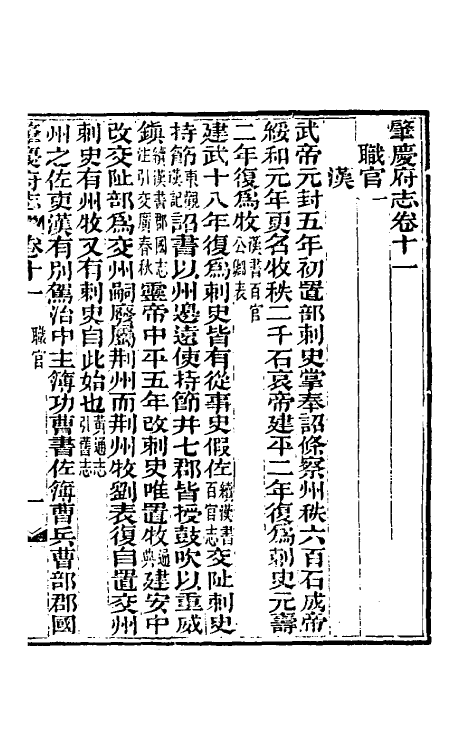 肇慶府志卷十一
職官一
漢
武帝元封五年初置部刺史掌奉詔條察州秩六百石成帝
綏和元年更名牧秩二千石哀帝建平二年復爲刺史元壽
二年復爲牧漢書百官公卿表
建武十八年復爲刺史皆有從事史假佐續漢書百官志交阯刺史
持節東觀漢記詔書以州邊遠使持節并七郡皆授鼓吹以重威
鎮續漢書郡國志注引交廣春秋靈帝中平五年改刺史唯置牧通典建安中
改交阯部爲交州嗣廢屬荆州而荆州牧劉表復自置交州
刺史有州牧又有刺史自此始也黃通志引舊志
州之佐吏漢有別駕治中主簿功曹書佐簿曹兵曹部郡國
肇慶府志 卷十一 職官 一